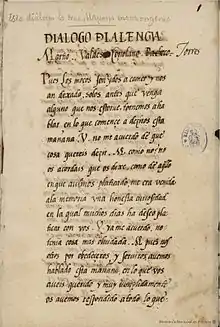 DIALOGO D LA LENGVA
Marcio, Valdes, Coriolano, Pacheco, Torres
Pues los moços son ydos a comer y nos
an dexado solos antes que venga
alguno que nos estorve, tornemos a ha
blar en lo que comence a deziros esta
mañana. V. no me acuerdo de que
cosa quereis dezir. M. como no? no
os acordais que os dixe como de aquello
en que aviamos platicado me era venida
a la memoria una honesta curiosidad
en la qual muchos dias ha deseo pla
ticar con vos. V. ya me acuerdo, no
tenia cosa mas olvidada. M. pues nos
otros por obedeceros y serviros avemos
hablado esta mañana en lo que vos
aveis querido y muy cumplidamente
os avemos respondido a todo lo que